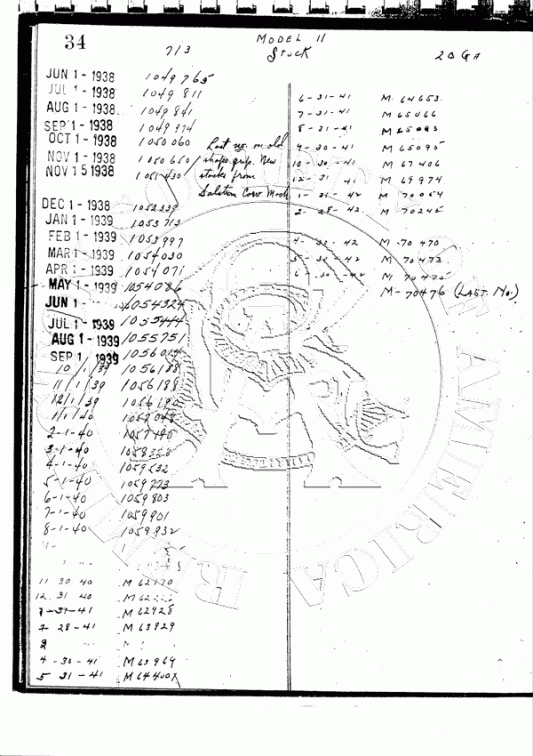 34
713
MODEL 11
Stock
20 GA
JUN 1 - 1938 1049765
JUL 1 - 1938 1049811
AUG 1 - 1938 1049841
SEP 1 - 1938 1049974
OCT 1 - 1938 1050060 Last no. on old
NOV 1 - 1938 1050650 shape grip. New
NOV 15 1938 1051430 stocks from
DEC 1 - 1938 1052339
JAN 1 - 1939 1053713
FEB 1 - 1939 1053997
MAR 1 - 1939 1054030
APR 1 - 1939 1054071
MAY 1 - 1939 1054086
JUN 1 - 1054324
JUL 1 - 1939 1055444
AUG 1 - 1939 1055751
SEP 1 1939 1056014
10/1/39 1056188
11/1/39 1056188
12/1/39 1056190
1/1/40
2-1-40
3-1-40
4-1-40 1059532
5-1-40 1059773
6-1-40 1059803
7-1-40 1059901
8-1-40 1059932
11 30 40 M 62170
12 31 40
1-31-41 M 62928
2 28-41 M 63829
4-30-41 M 63969
5 31-41 M 64401
6-31-41 M 64653
7-31-41 M 65066
8-31-41 M 65093
9-30-41 M 65095
10-30-41 M 67406
12-31-41 M 69974
1-31-42 M 70064
2-28-42 M 70245
4-30-42 M-70470
5-30-42 M 70473
6-30-42
M-70476 (LAST NO.)
AMERICA